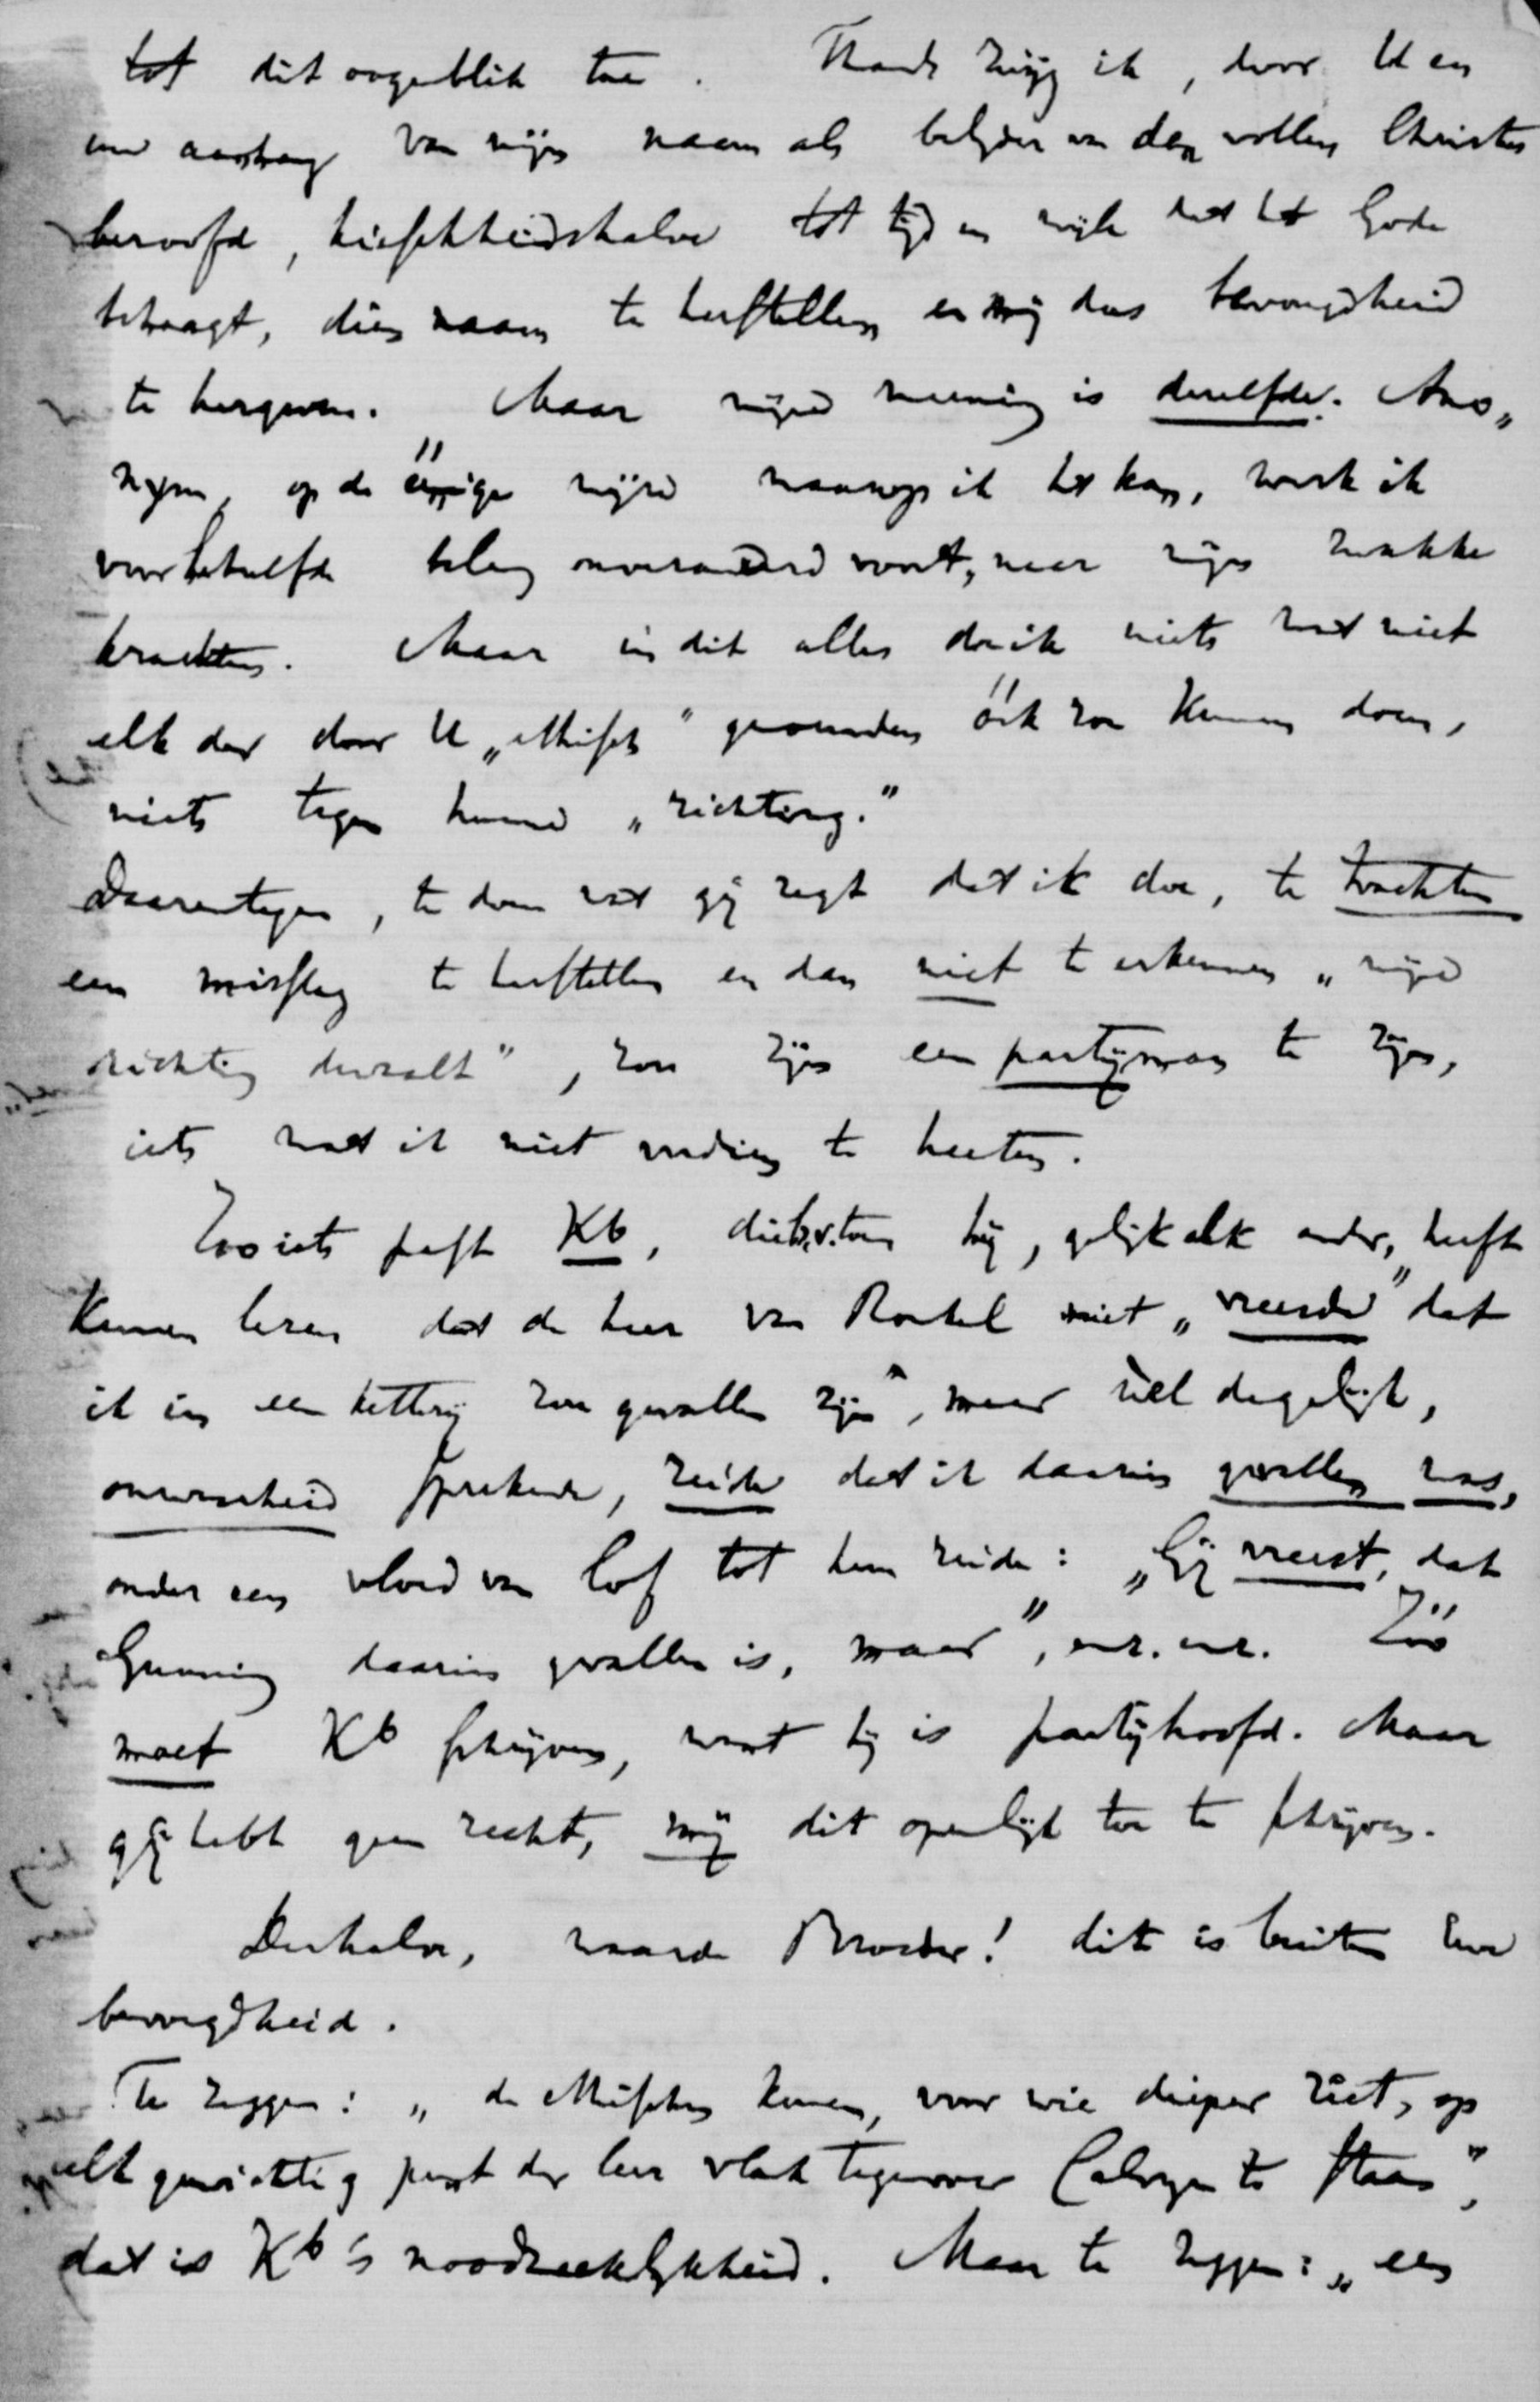 tot dit oogenblik toe. Thans zwijg ik, door U en
uw aanhang van mijn naam als belijder van den vollen Christus
beroofd, kieschheidshalve tot tijd en wijle dat het Gode
behaagt, dien naam te herstellen en mij dus bevoegdheid
te hergeven. Maar mijne meening is dezelfde. Ano„
nym, op de éénige wijze waarop ik het kan, werk ik
voor hetzelfde belang onveranderd voort, naar mijn zwakke
krachten. Maar in dit alles doe ik niets wat niet
elk der door U „ethisch" genoemden óók zou kunnen doen,
niets tegen hunne „richting."
Daarentegen, te doen wat gij zegt dat ik doe, te trachten
een misslag te herstellen en dan niet te erkennen „mijne
richting dwaalt", zou zijn een partijman te zijn,
iets wat ik niet verdien te heeten.
Zoo iets past Kb, die b.v. toen hij, gelijk elk ander, heeft
kunnen lezen dat de heer van Ronkel niet „vreesde" dat
ik in een ketterij zou gevallen zijn, maar wel degelijk,
onwaarheid sprekende, zeide dat ik daarin gevallen was,
onder een vloed van lof tot hem zeide: „Gij vreest, dat
Gunning daarin gevallen is, maar", enz. enz. Zóó
moet Kb schrijven, want hij is partijhoofd. Maar
gij hebt geen recht, mij dit openlijk toe te schrijven.
Derhalve, waarde Broeder! dit is buiten Uwe
bevoegdheid.
Te zeggen: „de ethischen komen, voor wie dieper ziet, op
elk gewichtig punt der leer vlak tegenover Calvijn te staan",
dat is Kb's noodzakelijkheid. Maar te zeggen: „een